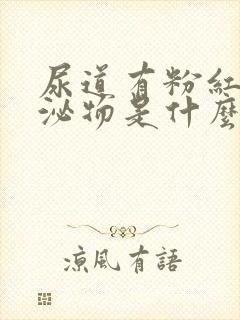 尿道有粉紅
泌物是什麼
涼風有語